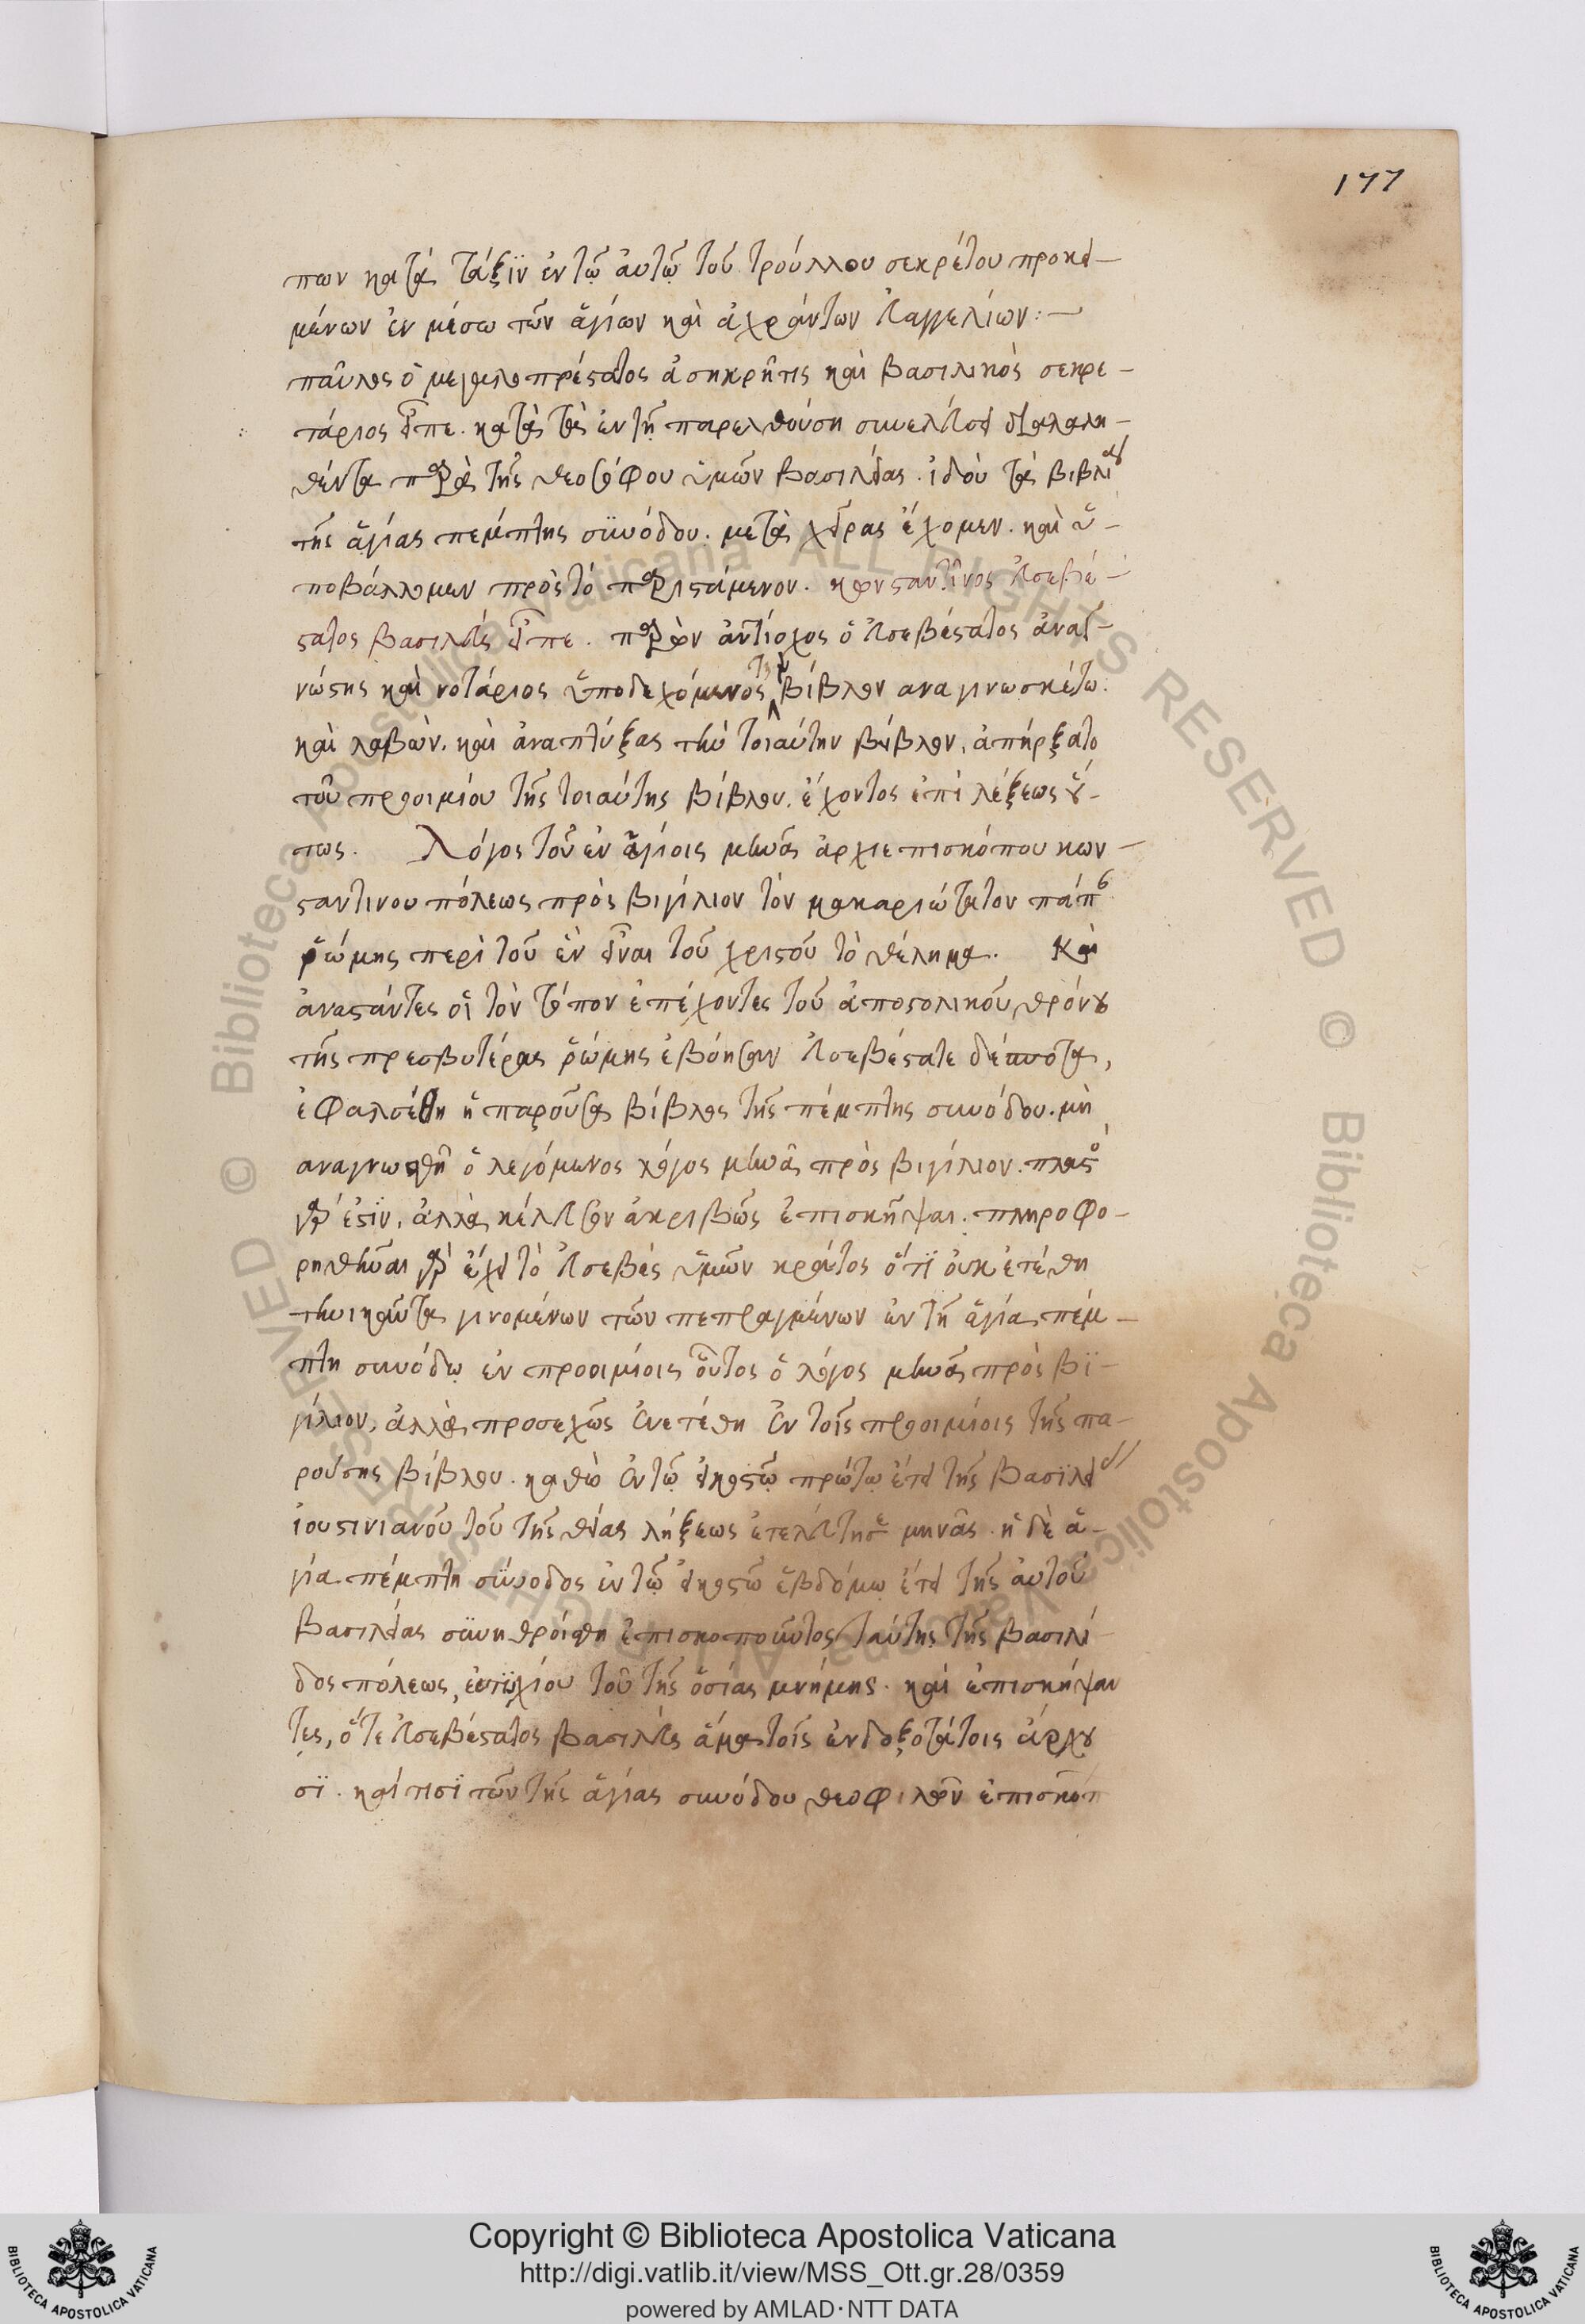 177
πων κατὰ τάξϊν ἐν τῷ ἀυτῷ τοῦ τρούλλου σεκρέτου προκει-
μένων ἐν μέσω τῶν ἁγίων καὶ ἀχράντων ἐυαγγελίων:-
παῦλος ὁ μεγαλοπρέστατος ἀσηκρῆτις καὶ βασιλικὸς σεκρε-
τάριος εἶπε. κατὰ τὰ ἐν τῇ παρελθούση συνελεύσει διαλαλη-
θέντα παρὰ τῆς θεοστέφου ὑμῶν βασιλείας. ἰδοὺ τὰ βιβλία
τῆς ἁγίας πέμπτης σϋνόδου. μετὰ χεῖρας ἔχομεν. καὶ ὑ-
ποβάλλομεν πρὸς τὸ παριστάμενον. κωνσταντῖνος ἐυσεβέ-
στατος βασιλεὺς εἶπε. παρὼν ἀντίοχος ὁ ἐυσεβέστατος ἀναγ-
νώστης καὶ νοτάριος ὑποδεχόμενος τὴν βίβλον αναγινωσκέτω.
καὶ λαβὼν. καὶ ἀναπτύξας τὴν τοιαύτην βίβλον, ἀπήρξατο
τοῦ προοιμίου τῆς τοιαύτης βίβλου. ἔχοντος ἐπὶ λέξεως οὕ-
τως. Λόγος τοῦ ἐν ἁγίοις μηνᾶ ἀρχιεπισκόπου κων-
σταντινουπόλεως πρὸς βιγίλιον τὸν μακαριώτατον πάπαν
ῥώμης περὶ τοῦ ἓν εἶναι τοῦ χριστοῦ τὸ θέλημα. Καὶ
ἀναστάντες οἱ τὸν τόπον ἐπέχοντες τοῦ ἀποστολικοῦ θρόνου
τῆς πρεσβυτέρας ῥώμης ἐβόησαν ἐυσεβέστατε δέσποτα,
ἐφαλσέυθη ἡ παροῦσα βίβλος τῆς πέμπτης συνόδου. μὴ
αναγνωσθῆ ὁ λεγόμενος λόγος μηνᾶ πρὸς βιγίλιον. πλαστὸς
γάρ ἐστϊν, ἀλλὰ κέλευσον ἀκριβῶς ἐπισκῆψαι. πληροφο-
ρηθῆναι γὰρ ἔχει τὸ ἐυσεβὲς ὑμῶν κράτος ὅτϊ ὀυκ ἐτέθη
τηνικαῦτα γινομένων τῶν πεπραγμένων ἐν τῆ ἁγία πέμ-
πτη συνόδῳ ἐν προοιμίοις οὗτος ὁ λόγος μηνᾶ πρὸς βϊ-
γίλιον, ἀλλὰ προσεχῶς ἐνετέθη ἐν τοῖς προοιμίοις τῆς πα-
ρούσης βίβλου. καθὼ ἐν τῷ εἰκοστῷ πρώτῳ ἔτει τῆς βασϊλείας
ἰουστινιανοῦ τοῦ τῆς θείας λήξεως ἐτελεύτησε μηνᾶς. ἡ δὲ ἁ-
γία πέμπτη σύνοδος ἐν τῷ εἰκοστῶ ἑβδόμῳ ἔτει τῆς ἀυτοῦ
βασιλείας σϋνηθροίσθη ἐπισκοποῦντος ταύτης τῆς βασιλί-
δος πόλεως, ἐυτϋχίου τοῦ τῆς ὁσίας μνήμης. καὶ ἐπισκήψαν
τες, ὅ τε ἐυσεβέστατος βασιλεὺς ἅμα τοῖς ἐνδοξοτάτοις ἄρχου
σϊ. καί τισϊ τῶν τῆς ἁγίας συνόδου θεοφιλῶν ἐπισκόπ
Copyright © Biblioteca Apostolica Vaticana
http://digi.vatlib.it/view/MSS_Ott.gr.28/0359
powered by AMLAD·NTT DATA
BIBLIOTECA APOSTOLICA VATICANA
BIBLIOTECA APOSTOLICA VATICANA
© Biblioteca Apostolica Vaticana ALL RIGHTS RESERVED
© Biblioteca Apostolica Vaticana ALL RIGHTS RESERVED